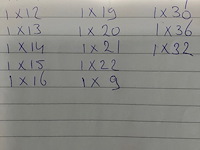 1 X 12
1 X 13
1 X 14
1 X 15
1 X 16
1 X 19
1 X 20
1 X 21
1 X 22
1 X 9
1 X 30
1 X 36
1 X 32